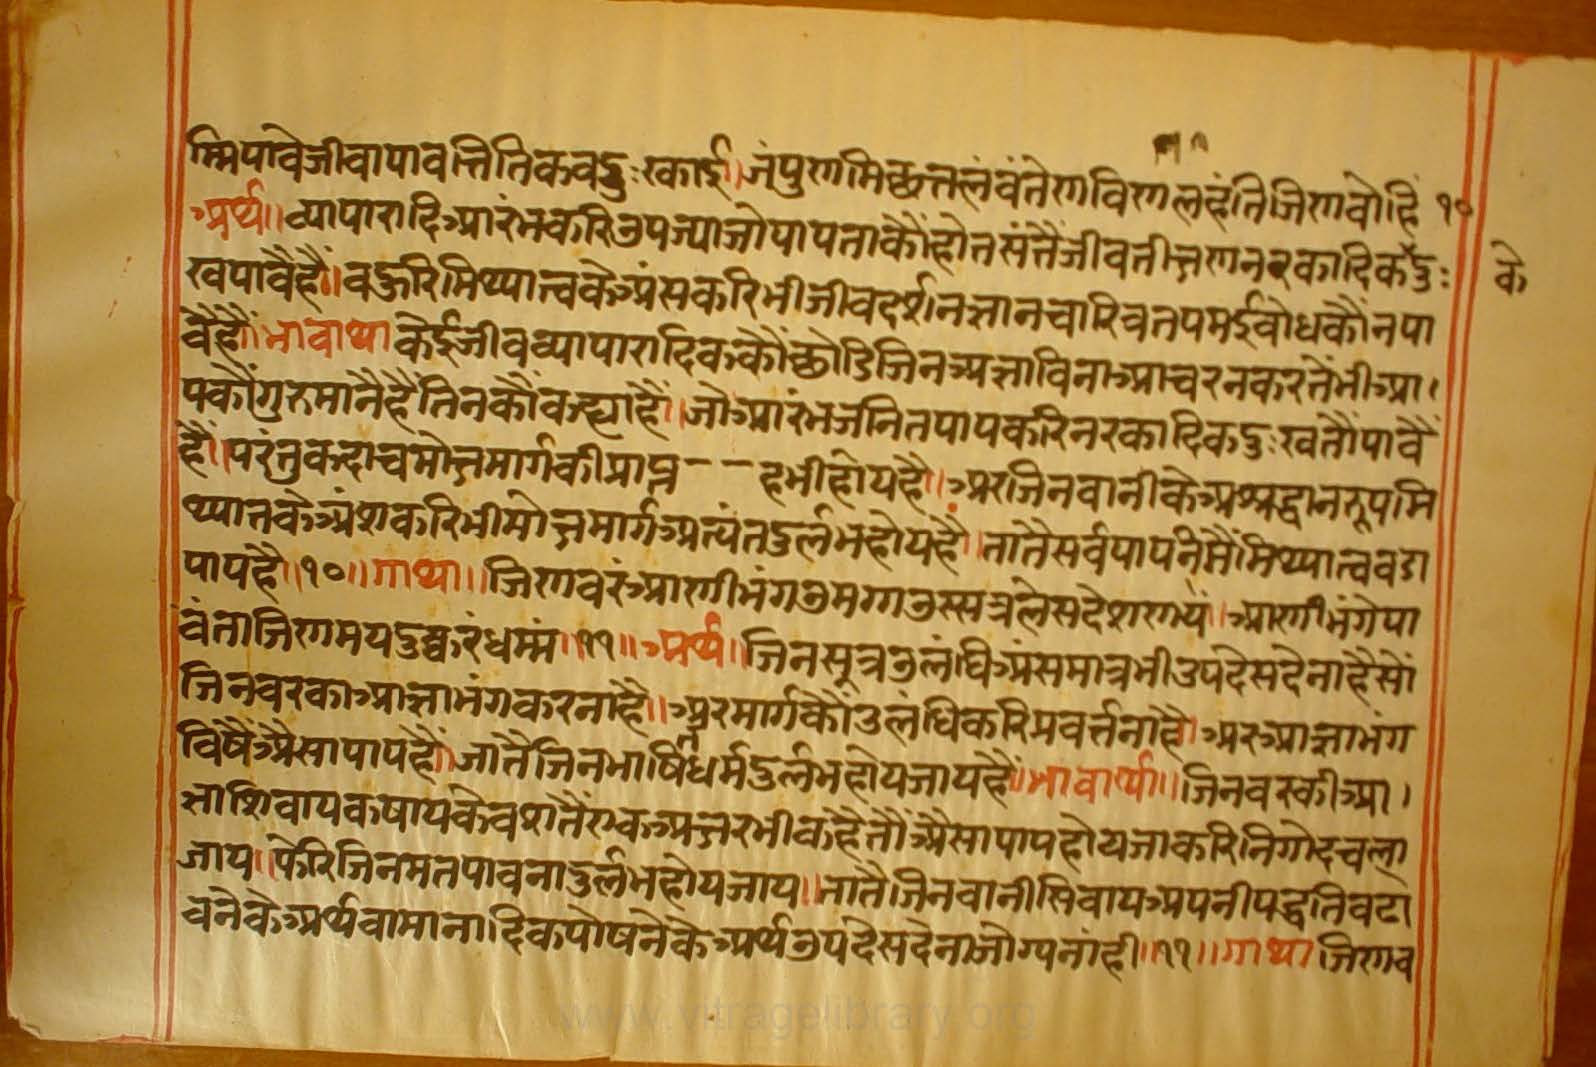 म्मिपावेजीवापावत्तितिकवदुःरकाई।जंपुणमिछत्तलवंतेणविणलहंतिजिणवोहिं१०
अर्थ॥व्यापारादिआरंभकरिउपज्याजोपापताकौंहोतसंतैंजीवतीक्ष्णनरकादिकदुः
के
खपावैहैं॥वऊरिमिथ्यात्त्वकेअंसकरिभीजीवदर्शनज्ञानचारित्रतपमईवोधकौंनपा
वैहैं॥भावार्थ॥केईजीवव्यापारादिककौंछोडिजिनअज्ञाविनाआचरनकरतेंभीआ।
पकौंगुरुमानैहैंतिनकौंकह्याहैं॥जोआरंभजनितपापकरिनरकादिकदुःखतौंपावैं
हैं॥परंतुकदाचमोक्षमार्गकीप्राप्न--हभीहोयहै॥अरजिनवानीकेअश्रद्धानरूपमि
थ्यातकेअंशकरिभीमोक्षमार्गअत्यंतदुर्लभहोयहैं॥तातैसर्वपापनिमैंमिथ्यात्ववडा
पापहै॥१०॥गाथा॥जिणवरआणाभंगंउमग्गउस्सत्रलेसदेशणयं॥आणाभंगेपा
वंताजिणमयदुक्करंधम्मं॥११॥अर्थ॥जिनसूत्रउलंघिअंसमात्रभीउपदेसदेनाहैसों
जिनवरकाआज्ञाभंगकरनाहै॥अरमार्गकौंउलंघिकरिप्रवर्त्तनाहै॥अरुआज्ञाभंग
विषैंअैसापापहैं॥जातैजिनभाषितधर्मदुर्लभहोयजायहैं॥भावार्थ॥जिनवरकीआ।
ज्ञाशिवायकषायकेवशतैंएकअक्षरभीकहैतौंअैसापापहोयजाकरिनिगोदचला
जाय॥फेरिजिनमतपावनादुर्लभहोयजाय॥तातैजिनवानीसिवायअपनीपद्धतिवढा
वनेकेअर्थवामानादिकपोषनेकेअर्थउपदेसदेनाजोग्यनांही॥११॥गाथाजिणव
www.vitragelibrary.org